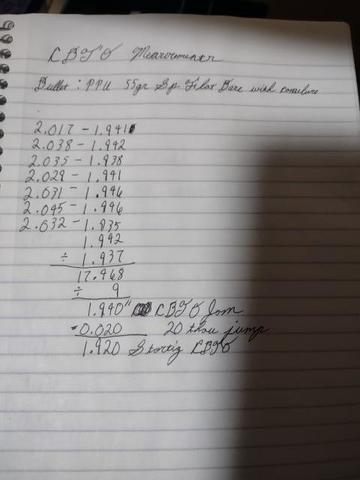 CBTO Measurements
Bullet: PPU 55gr Sp Flat Base with
2.017 - 1.941
2.038 - 1.942
2.035 - 1.938
2.029 - 1.941
2.031 - 1.946
2.045 - 1.946
2.032 - 1.935
1.942
÷ 1.937
17.468
÷ 9
1.940" CBTO Jam
-0.020 20 thou jump
1.920 Startig CBTO